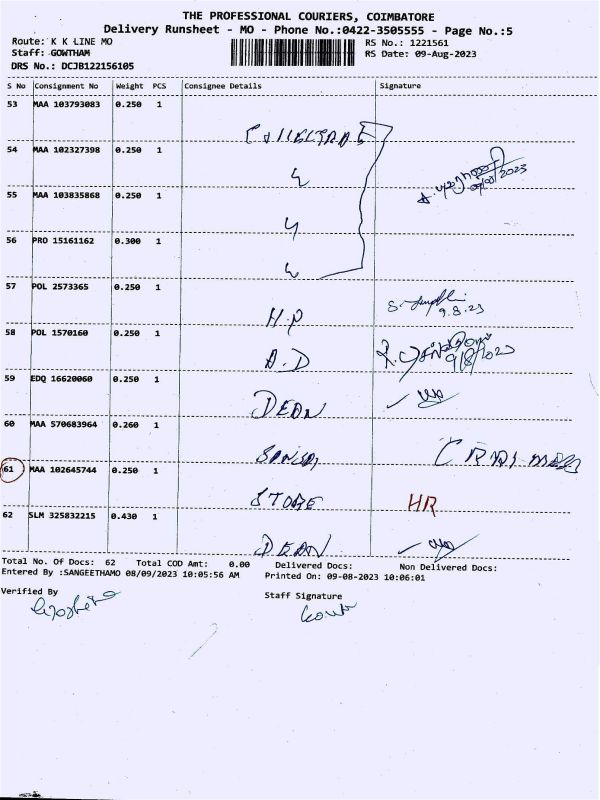 THE PROFESSIONAL COURIERS, COIMBATORE
Delivery Runsheet - MO - Phone No.:0422-3505555 - Page No.:5
Route: K K LINE MO RS No.: 1221561
Staff: GOWTHAM RS Date: 09-Aug-2023
DRS No.: DCJB122156105
S No Consignment No Weight PCS Consignee Details Signature
53 MAA 103793083 0.250 1
54 MAA 102327398 0.250 1
09/08/2023
55 MAA 103835868 0.250 1
56 PRO 15161162 0.300 1
57 POL 2573365 0.250 1
H.P 9.8.23
58 POL 1570160 0.250 1
A.D 9/8/2023
59 EDQ 16620060 0.250 1
DEAN
60 MAA 570683964 0.260 1
61 MAA 102645744 0.250 1
STORE HR
62 SLM 325832215 0.430 1
DEAN
Total No. Of Docs: 62 Total COD Amt: 0.00 Delivered Docs: Non Delivered Docs:
Entered By :SANGEETHAMO 08/09/2023 10:05:56 AM Printed On: 09-08-2023 10:06:01
Verified By Staff Signature